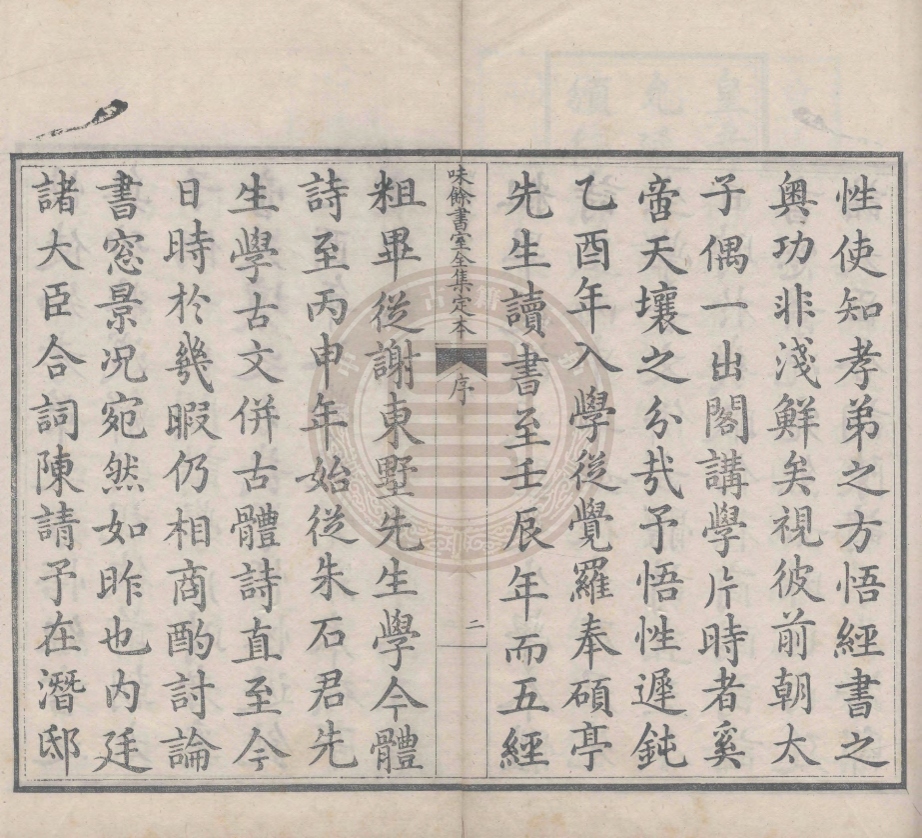 性使知孝弟之方悟經書之
奥功非淺鮮矣視彼前朝太
子偶一出閣講學片時者奚
啻天壤之分哉予悟性遲鈍
乙酉年入學從覺羅奉碩亭
先生讀書至壬辰年而五經
味餘書室全集定本 序 二
粗畢從謝東墅先生學今體
詩至丙申年始從朱石君先
生學古文併古體詩直至今
日時於幾暇仍相商酌討論
書窓景况宛然如昨也内廷
諸大臣合詞陳請予在潛邸